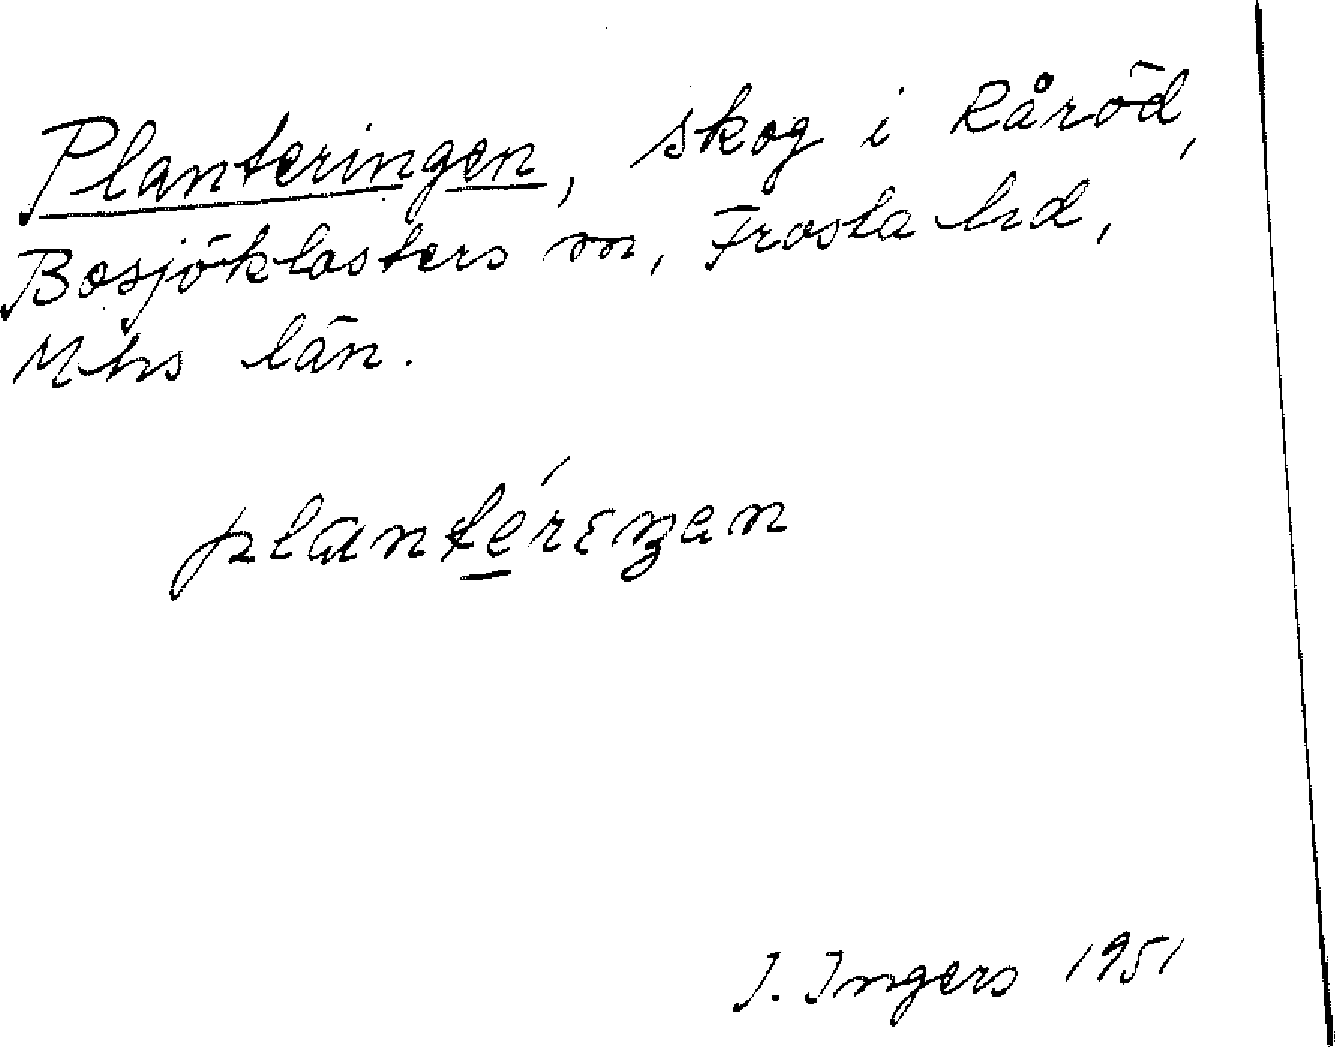 Planteringen, skog i Råröd,
Bosjöklosters sn, Frosta hd,
Mhs län.
plantérɪŋan
I. Ingers 1951